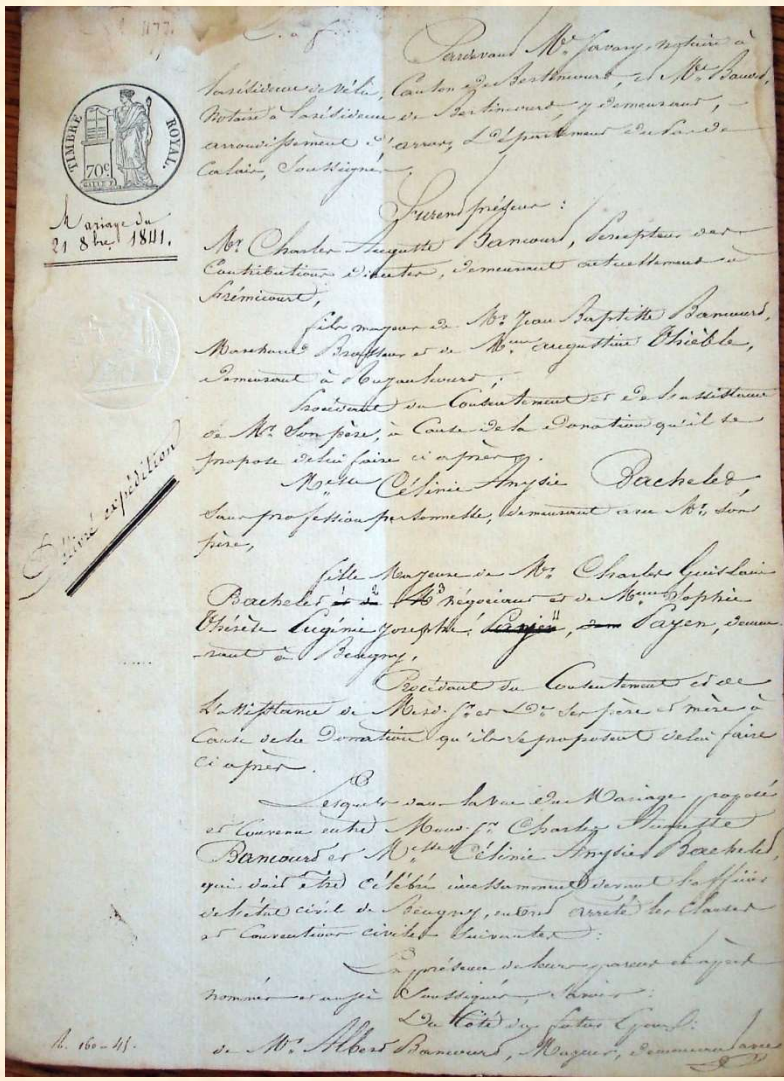 1177.
TIMBRE ROYAL.
70c
Mariage du
21 8bre 1841.
Délivré expédition
Pardevant Me Savary, notaire à
la résidence de Vélu, Canton de Bertincourt, et Me
Notaire à la résidence de Bertincourt, y demeurant,
arrondissement d'arras, Département du Pas de
Calais, Soussignés,
Furent présens :
Mr Charles Auguste Bancourt, Percepteur des
Contributions directes, demeurant actuellement à
Frémicourt,
fils majeur de Mr Jean Baptiste Bancourt,
Marchand Brasseur et de Mme augustine Thièble,
demeurant à Ruyaulcourt,
Procédant du Consentement et de l'assistance
de Mr Son père, à Cause de la donation qu'il se
propose de lui faire ci après.
Melle Célinie Anysie Bachelet
Sans profession personnelle, demeurant avec Mr Son
père,
fille Majeure de Mr Charles Guislain
Bachelet négociant et de Mme Sophie
Thérèse Eugénie Josephe Payen, demeu-
-rant à Beugny,
Procédant du Consentement et de
L'assistance de Mesd. Sr et De Ses père et mère à
Cause de la Donation qu'ils se proposent de lui faire
ci après.
Lesquels dans la vue du Mariage proposé
et Convenu entre Mond. Sr Charles Auguste
Bancourt et Melle Célinie Anysie Bachelet,
qui doit être Célébré incessamment devant l'officier
de l'état civil de Beugny, ont arrêté les Clauses
et Conventions civiles Suivantes :
En présence de leurs parens ci après
nommés et aussi Soussignés, Savoir :
Du Côté du futur Epoux :
de Mr Albert Bancourt, Majeur, demeurant avec
R. 160-45.